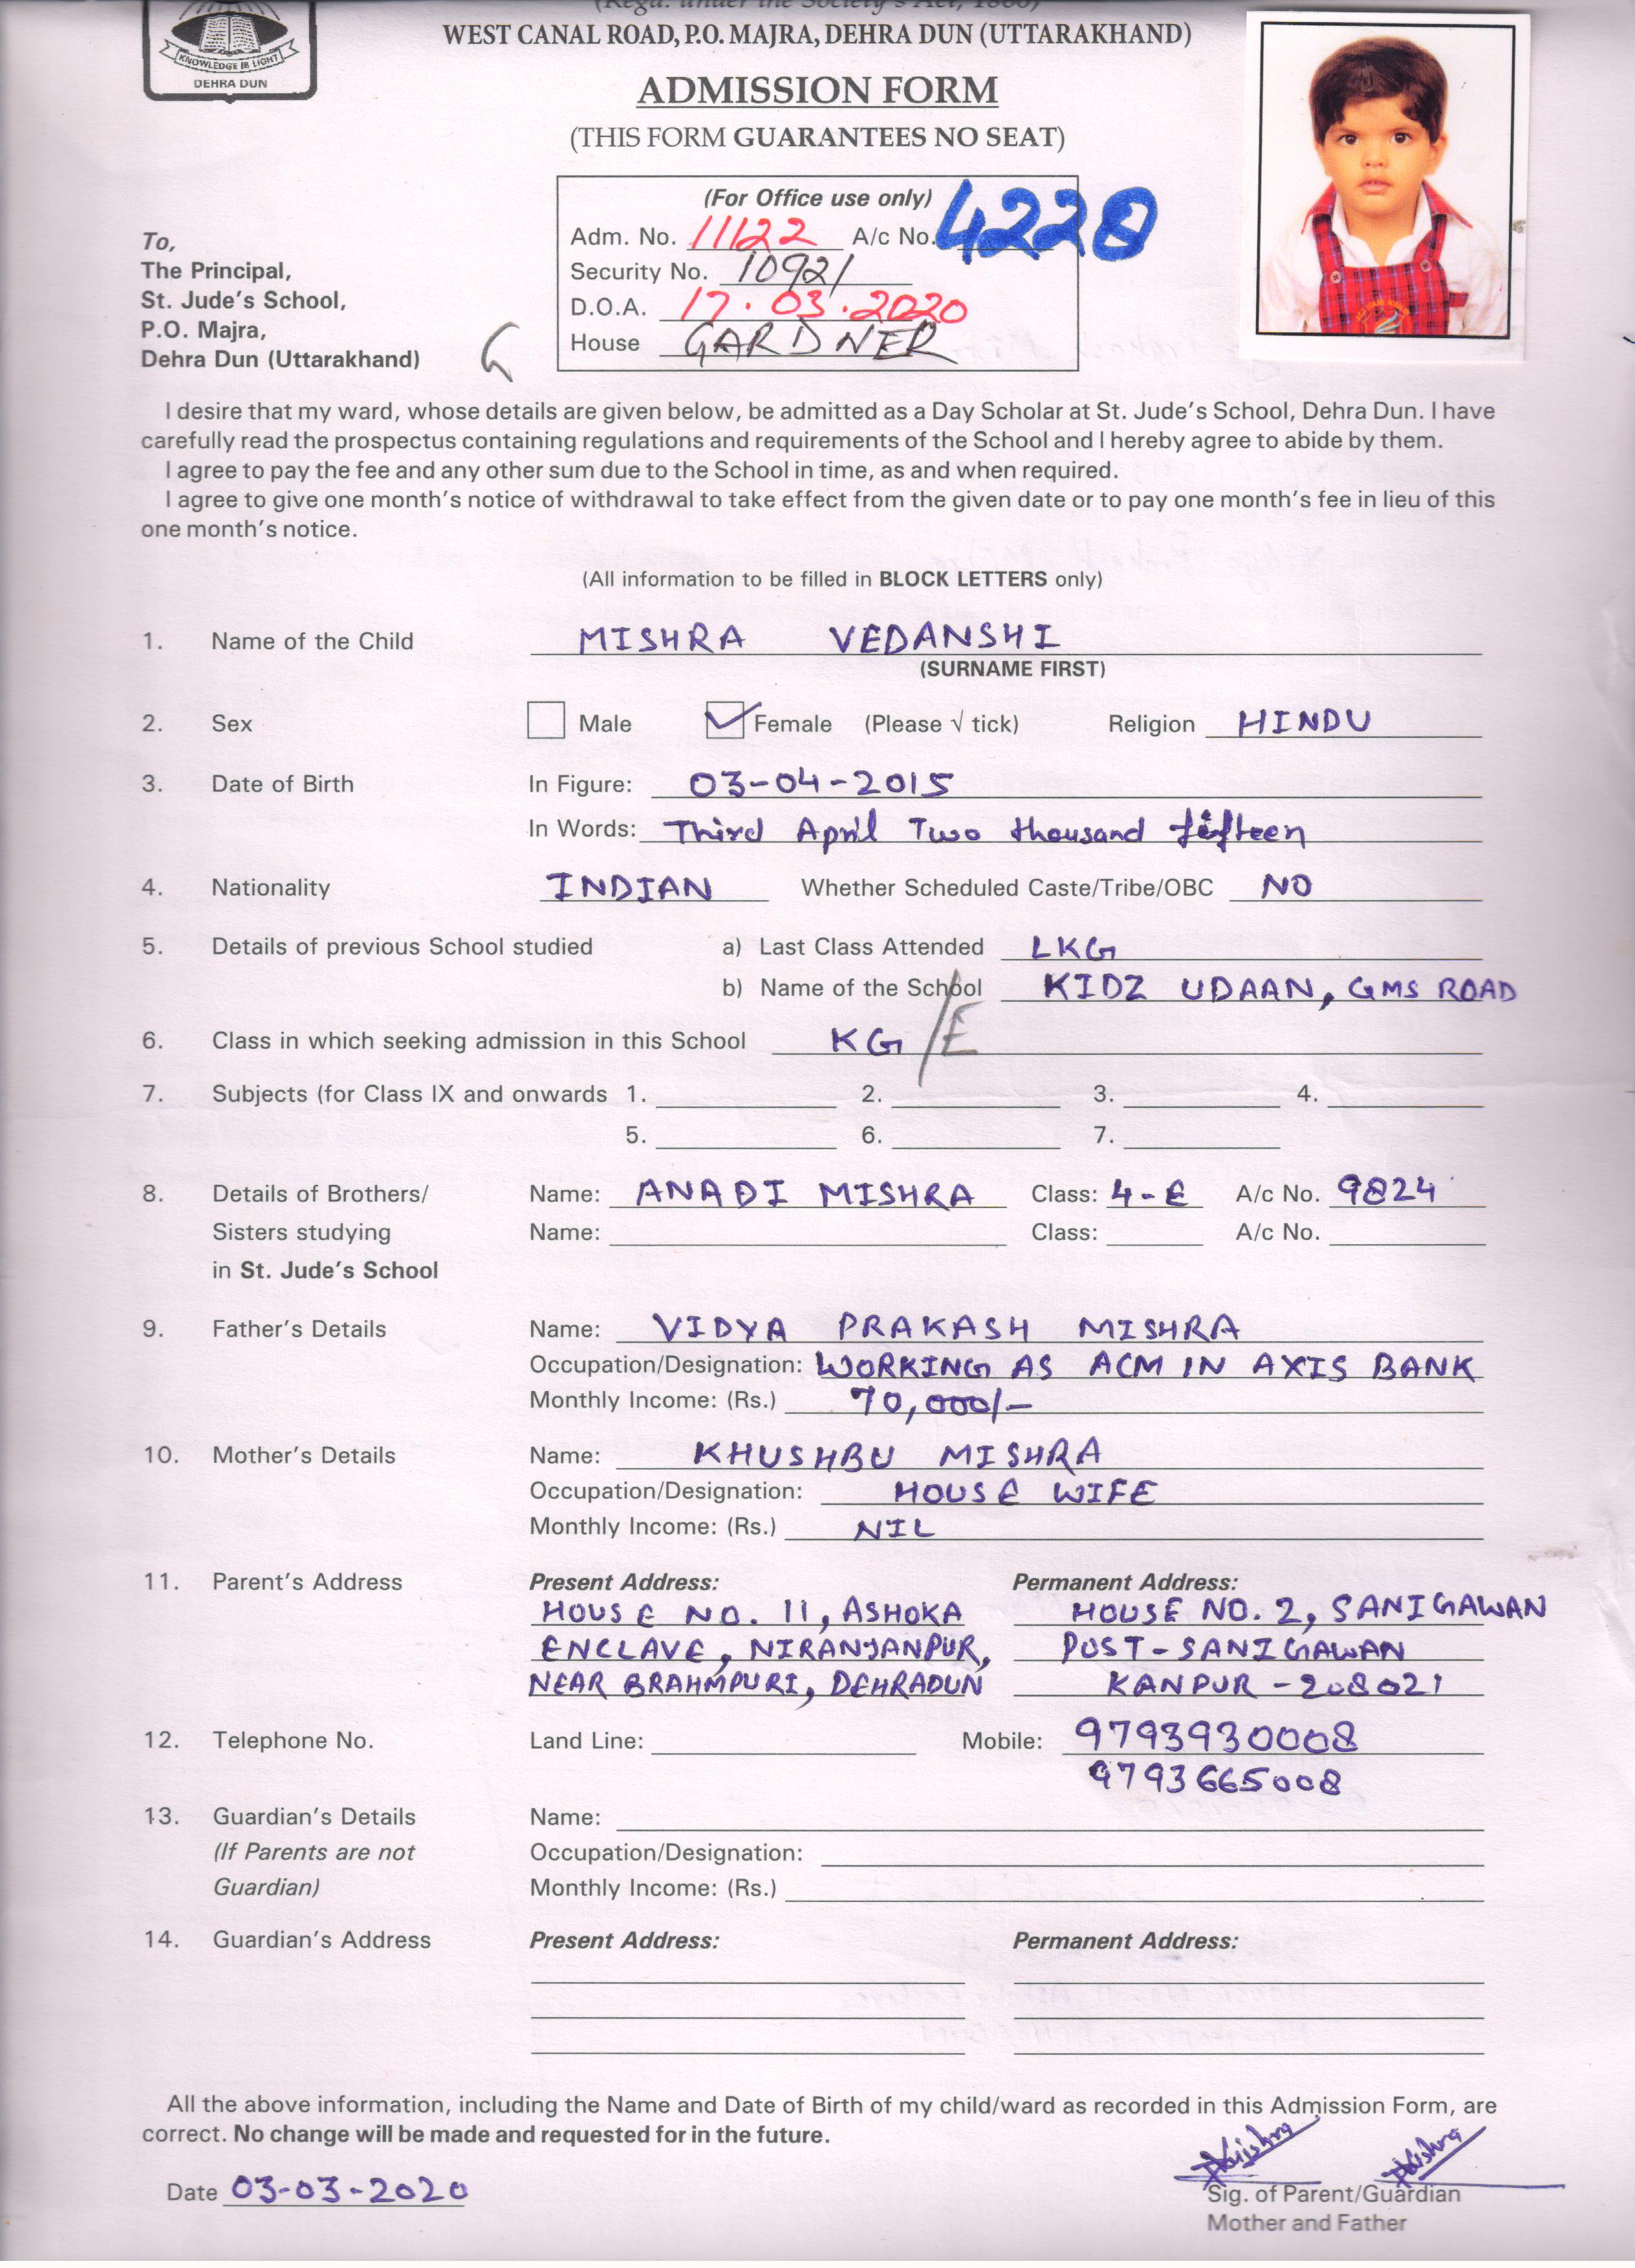 (Regd. under the Society's Act, 1860)
WEST CANAL ROAD, P.O. MAJRA, DEHRA DUN (UTTARAKHAND)
KNOWLEDGE IS LIGHT
DEHRA DUN
ADMISSION FORM
(THIS FORM GUARANTEES NO SEAT)
(For Office use only)
Adm. No. 11122 A/c No. 4228
Security No. 10921
D.O.A. 17.03.2020
House GARDNER
To,
The Principal,
St. Jude's School,
P.O. Majra,
Dehra Dun (Uttarakhand)
I desire that my ward, whose details are given below, be admitted as a Day Scholar at St. Jude's School, Dehra Dun. I have
carefully read the prospectus containing regulations and requirements of the School and I hereby agree to abide by them.
I agree to pay the fee and any other sum due to the School in time, as and when required.
I agree to give one month's notice of withdrawal to take effect from the given date or to pay one month's fee in lieu of this
one month's notice.
(All information to be filled in BLOCK LETTERS only)
1. Name of the Child MISHRA VEDANSHI
(SURNAME FIRST)
2. Sex Male Female (Please √ tick) Religion HINDU
3. Date of Birth In Figure: 03-04-2015
In Words: Third April Two thousand fifteen
4. Nationality INDIAN Whether Scheduled Caste/Tribe/OBC NO
5. Details of previous School studied a) Last Class Attended LKG
b) Name of the School KIDZ UDAAN, GMS ROAD
6. Class in which seeking admission in this School KG /E
7. Subjects (for Class IX and onwards 1. 2. 3. 4.
5. 6. 7.
8. Details of Brothers/ Name: ANADI MISHRA Class: 4-E A/c No. 9824
Sisters studying Name: Class: A/c No.
in St. Jude's School
9. Father's Details Name: VIDYA PRAKASH MISHRA
Occupation/Designation: WORKING AS ACM IN AXIS BANK
Monthly Income: (Rs.) 70,000/-
10. Mother's Details Name: KHUSHBU MISHRA
Occupation/Designation: HOUSE WIFE
Monthly Income: (Rs.) NIL
11. Parent's Address Present Address: Permanent Address:
HOUSE NO. 11, ASHOKA HOUSE NO. 2, SANIGAWAN
ENCLAVE, NIRANJANPUR, POST-SANIGAWAN
NEAR BRAHMPURI, DEHRADUN KANPUR - 208021
12. Telephone No. Land Line: Mobile: 9793930008
9793665008
13. Guardian's Details Name:
(If Parents are not Occupation/Designation:
Guardian) Monthly Income: (Rs.)
14. Guardian's Address Present Address: Permanent Address:
All the above information, including the Name and Date of Birth of my child/ward as recorded in this Admission Form, are
correct. No change will be made and requested for in the future.
Date 03-03-2020
Sig. of Parent/Guardian
Mother and Father